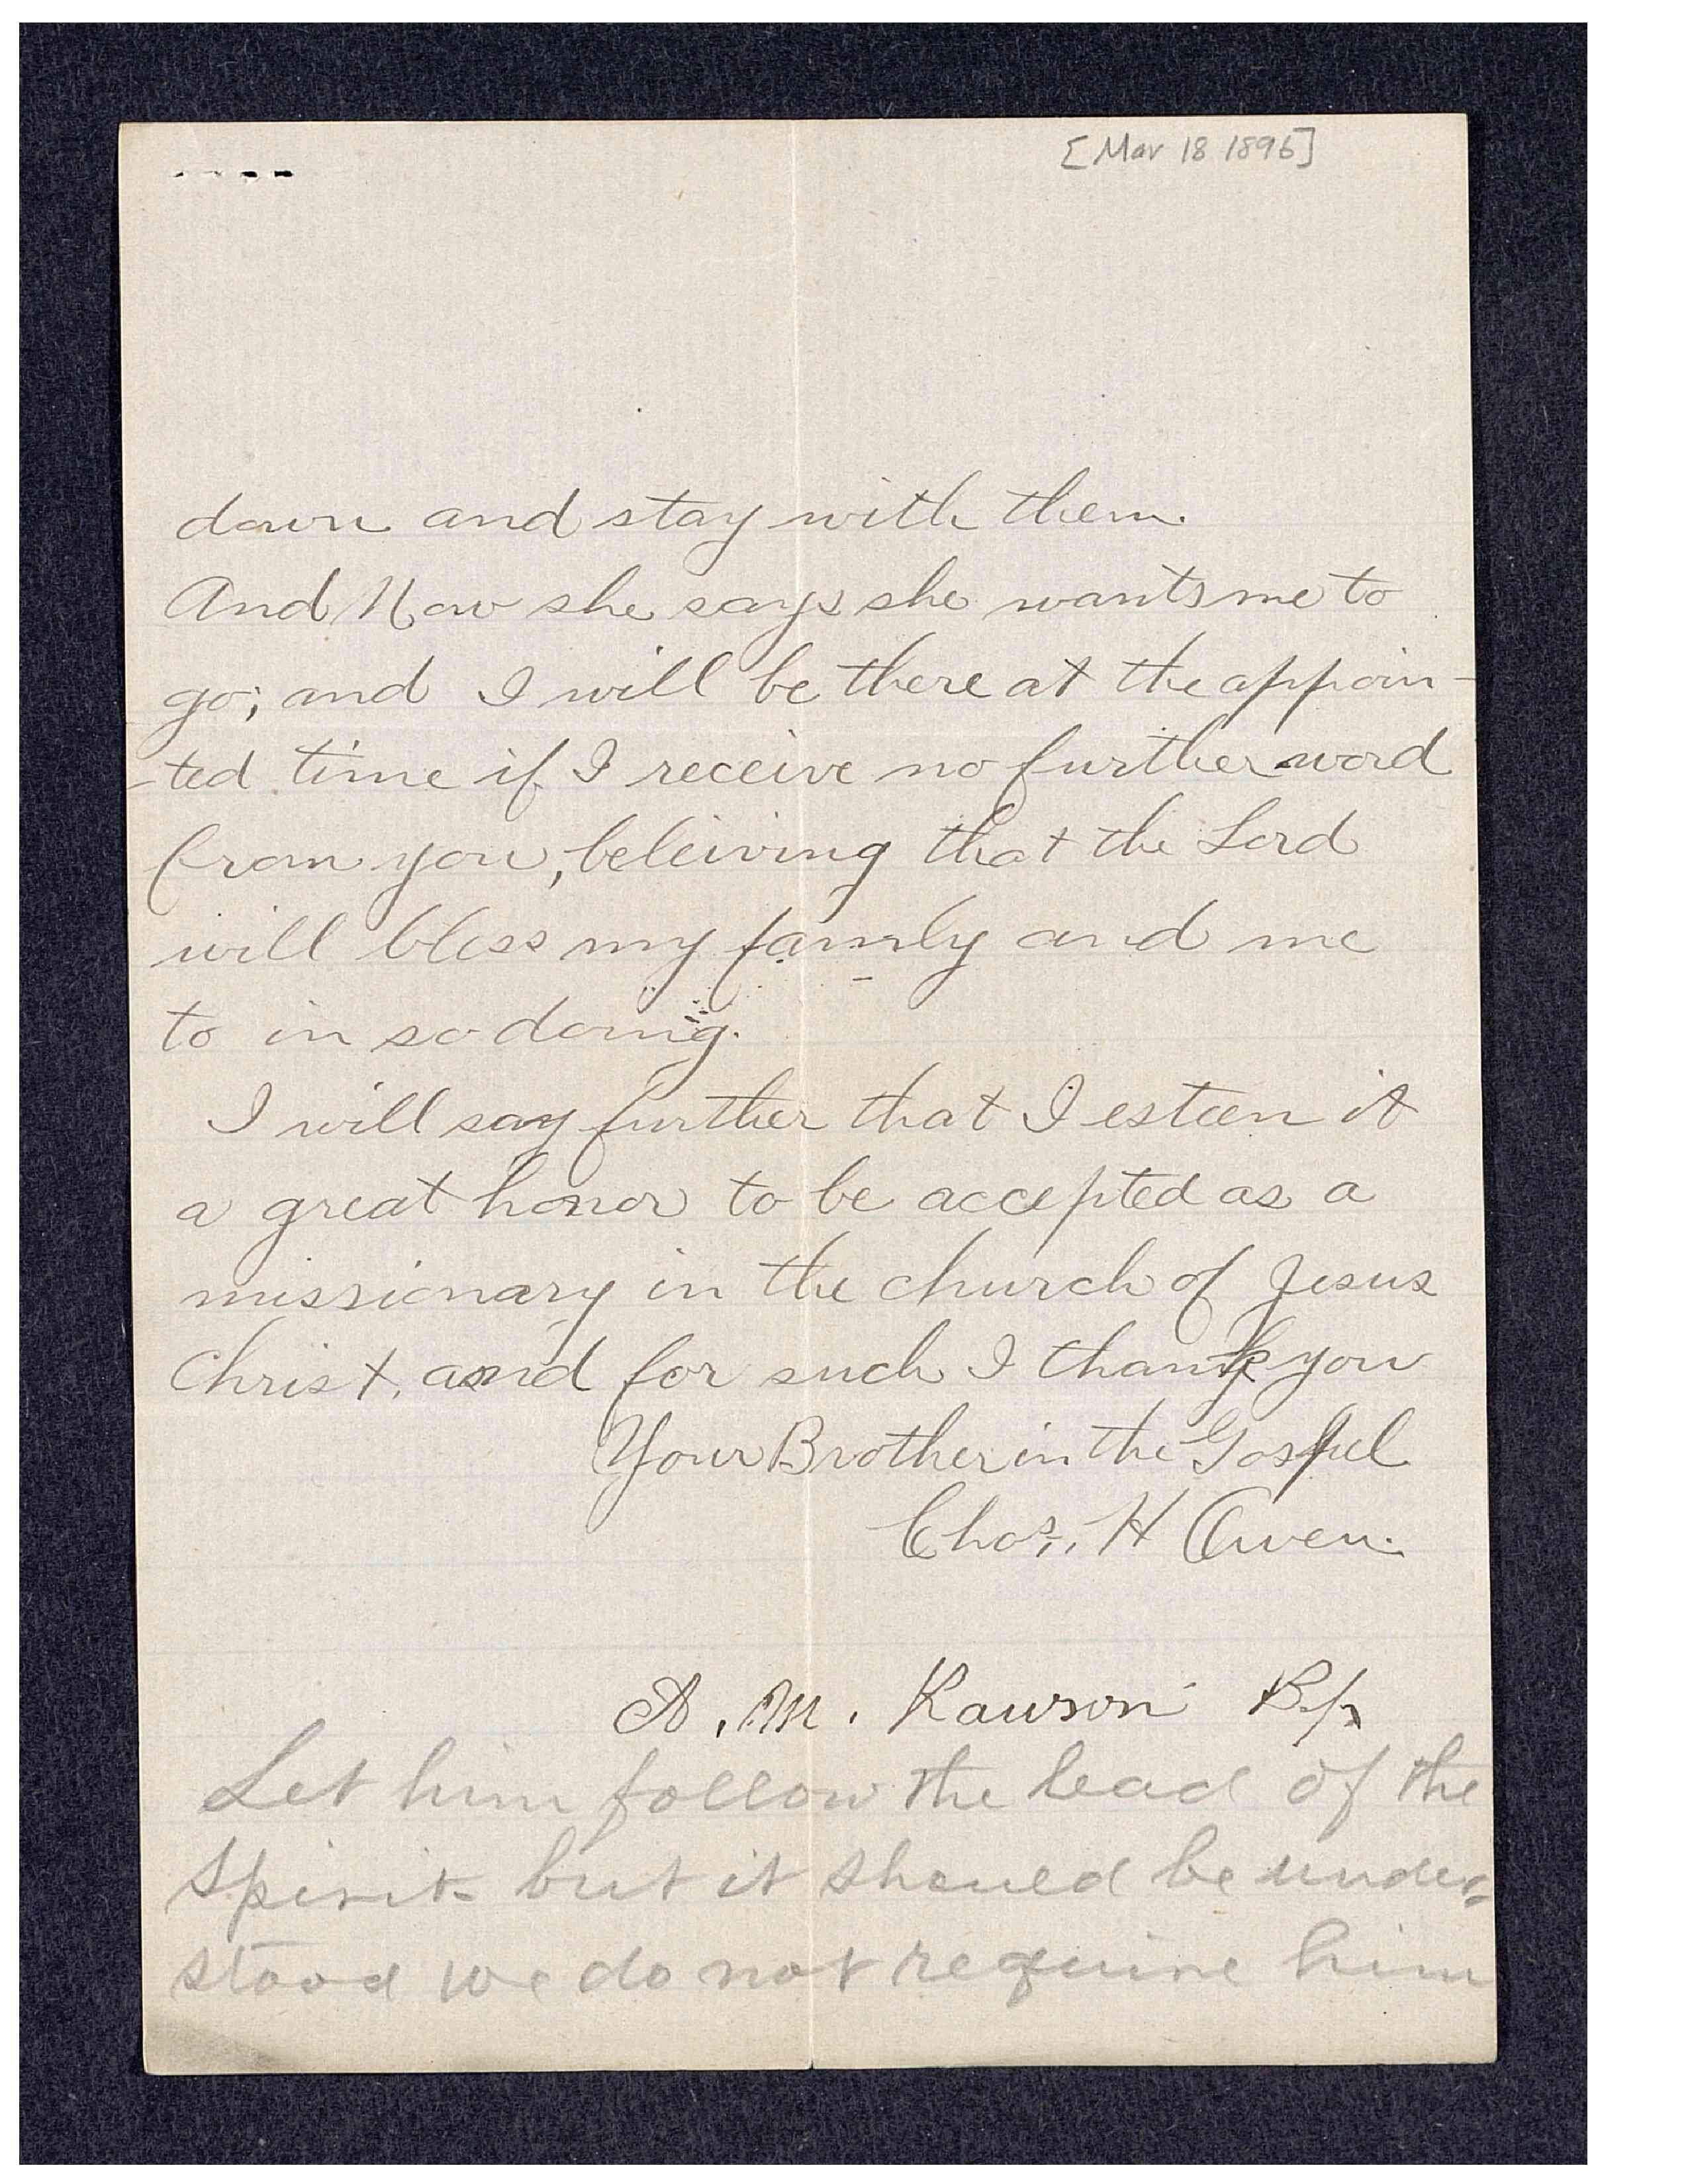 [Mar 18 1896]
down and stay with them.
And Now she says she wants me to
go; and I will be there at the appoin-
-ted time if I receive no further word
from you, beleiving that the Lord
will bless my family and me
to in so doing.
I will say further that I esteem it
a great honor to be accepted as a
missionary in the church of Jesus
Christ, and for such I thank you
Your Brother in the Gospel
Chas. H Owen.
A. M. Rawson Bp
Let him follow the lead of the
Spirit but it should be under=
stood we do not require him